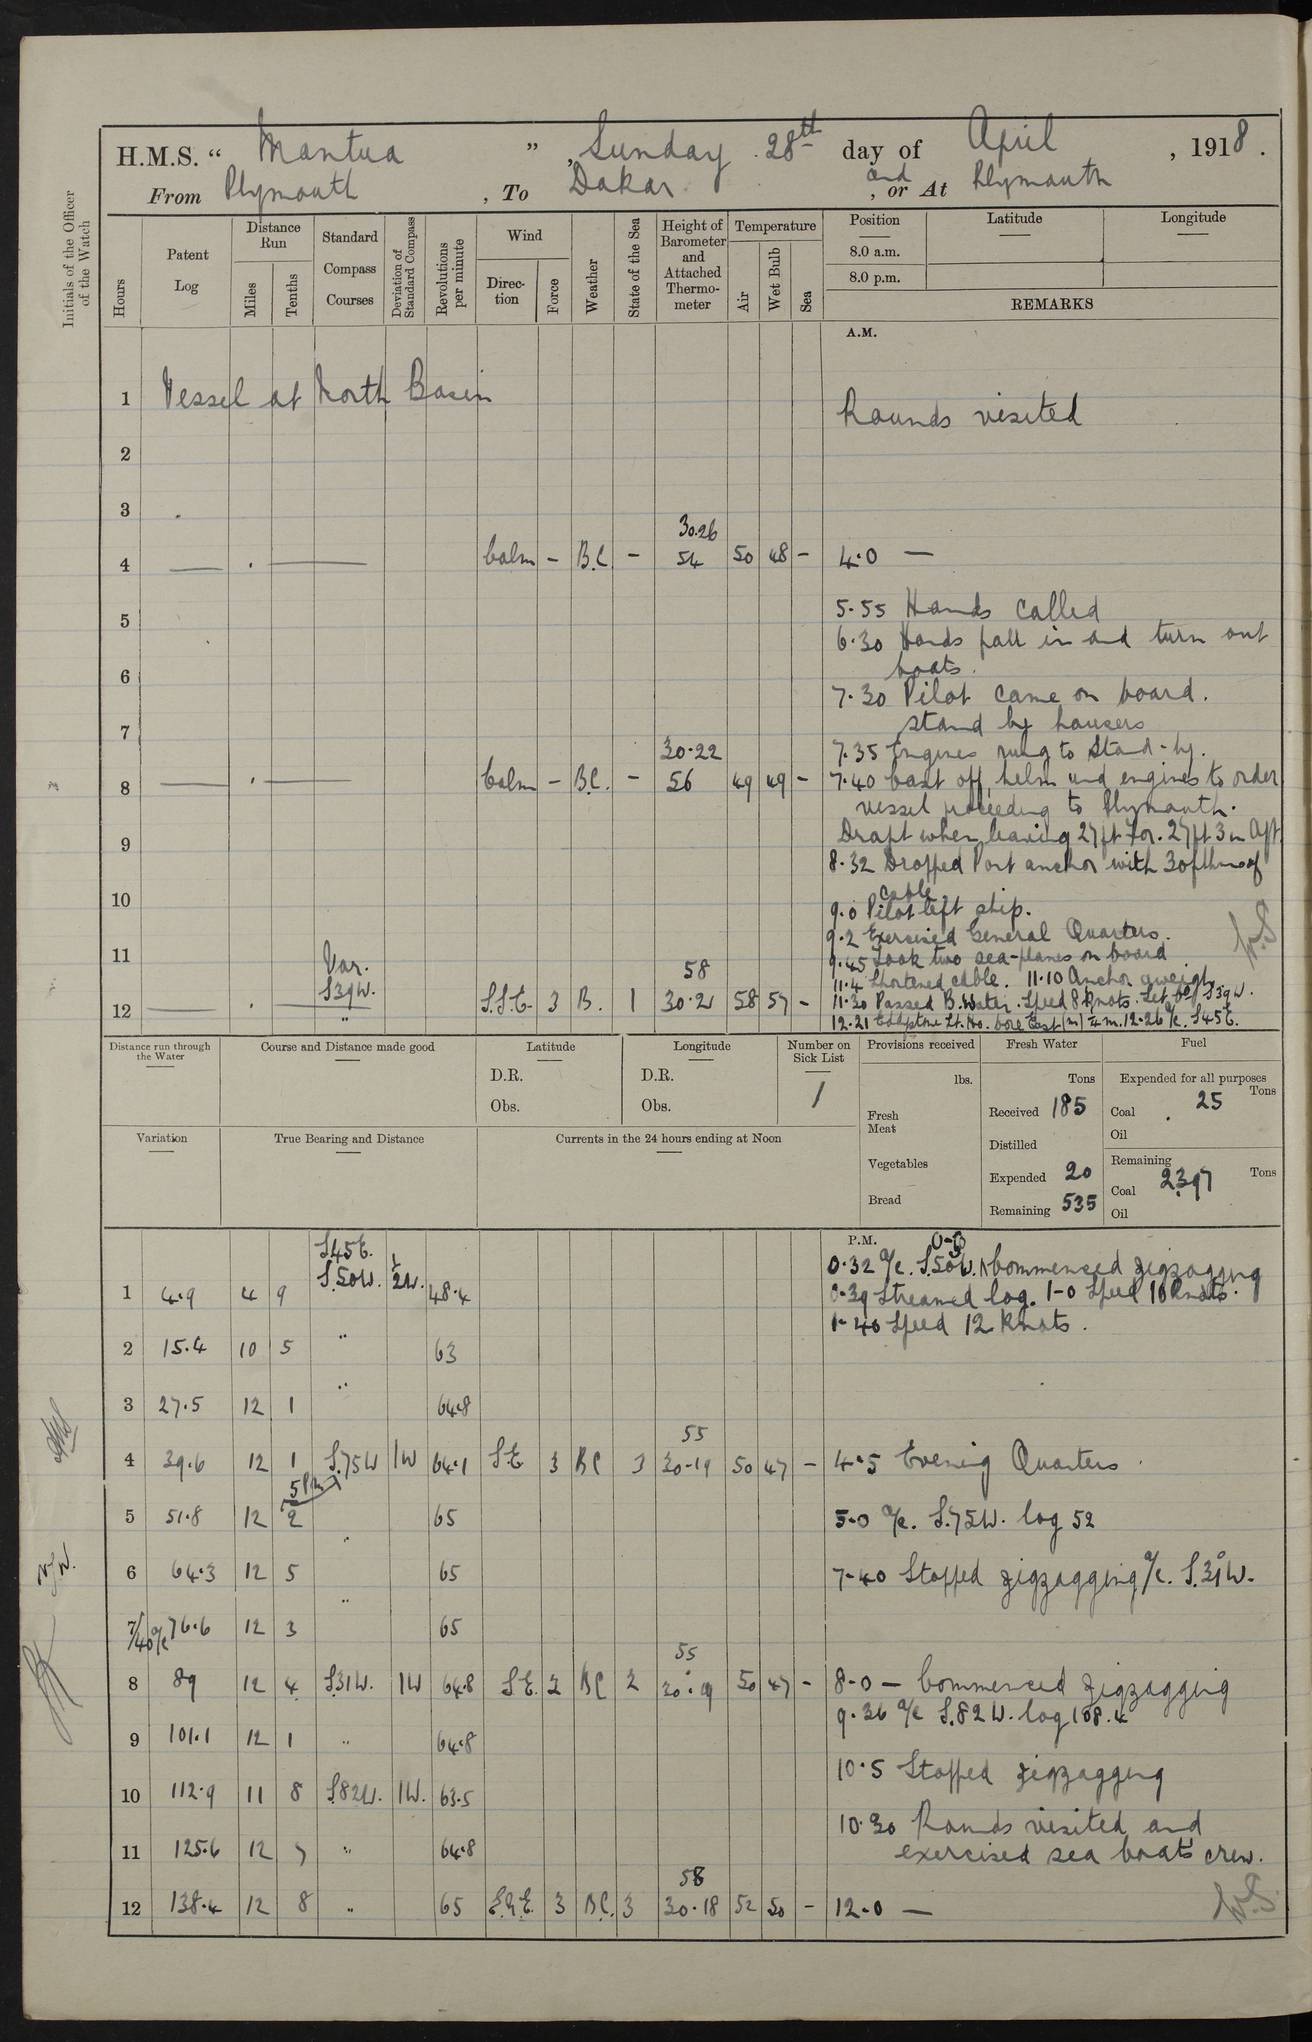 H.M.S. “ Mantua ” , Sunday 28th day of April , 1918 .
From Plymouth , To Dakar and , or At Plymouth
Initials of the Officer of the Watch
Hours
Patent Log
Distance Run
Miles
Tenths
Standard Compass Courses
Deviation of Standard Compass
Revolutions per minute
Wind
Direction
Force
Weather
State of the Sea
Height of Barometer and Attached Thermometer
Temperature
Air
Wet Bulb
Sea
Position
8.0 a.m.
8.0 p.m.
Latitude
Longitude
REMARKS
A.M.
1 Vessel at North Basin
Rounds visited
2
3
30.26
4 Calm – B.C. – 54 50 48 – 4.0 —
5 5.55 Hands called
6.30 Hands fall in and turn out
6 boats.
7.30 Pilot came on board.
7 stand by hawsers
30.22 7.35 Engines rung to Stand-by.
8 Calm – B.C. – 56 49 49 – 7.40 Cast off, helm and engines to order
vessel proceeding to Plymouth.
9 Draft when leaving 27ft For. 27ft 3in Aft
8.32 Dropped Port anchor with 30fthms of
10 cable
9.0 Pilot left ship.
9.2 Exercised General Quarters.
W.S.
11 Var. 58 9.45 Took two sea-planes on board
11.4 Shortened cable. 11.10 Anchor aweigh.
12 S39W. S.S.E. 3 B. 1 30.21 58 57 – 11.30 Passed B.Water. Speed 8 knots. Set Co S39W.
" 12.21 Eddystone Lt. Ho. bore East (m) ¼ m. 12.26 a/c. S45E.
Distance run through the Water
Course and Distance made good
Latitude
D.R.
Obs.
Longitude
D.R.
Obs.
Number on Sick List
1
Provisions received
lbs.
Fresh Meat
Vegetables
Bread
Fresh Water
Tons
Received 185
Distilled
Expended 20
Remaining 535
Fuel
Expended for all purposes
Tons
Coal 25
Oil
Remaining
Tons
Coal 2397
Oil
Variation
True Bearing and Distance
Currents in the 24 hours ending at Noon
P.M.
S45E. 0.32 a/c. S.50W. Commenced zigzagging
1 4.9 4 9 S.50W. ½W. 48.4 0.39 Streamed log. 1-0 Speed 10 Knots.
1-40 Speed 12 Knots.
2 15.4 10 5 " 63
3 27.5 12 1 " 64.8
55
4 39.6 12 1 S.75W 1W 64.1 S.E 3 BC 3 30-19 50 47 – 4.5 Evening Quarters
5 Pm
5 51.8 12 2 65 5-0 a/c. S.75W. log 52
6 64.3 12 5 " 65 7-40 Stopped zigzagging a/c. S.31°W.
7 76.6 12 3 " 65
7/40 a/c
55
8 89 12 4 S31W. 1W 64.8 S.E. 2 BC 2 30.19 50 47 – 8-0 – Commenced zigzagging
9.36 a/c S.82W. log 108.4
9 101.1 12 1 " 64.8
10.5 Stopped zigzagging
10 112.9 11 8 S82W. 1W. 63.5
10.30 Rounds visited and
11 125.6 12 7 " 64.8 exercised sea boats crew.
58
12 138.4 12 8 " 65 3 BC. 3 30.18 52 50 – 12.0 —
W.S.